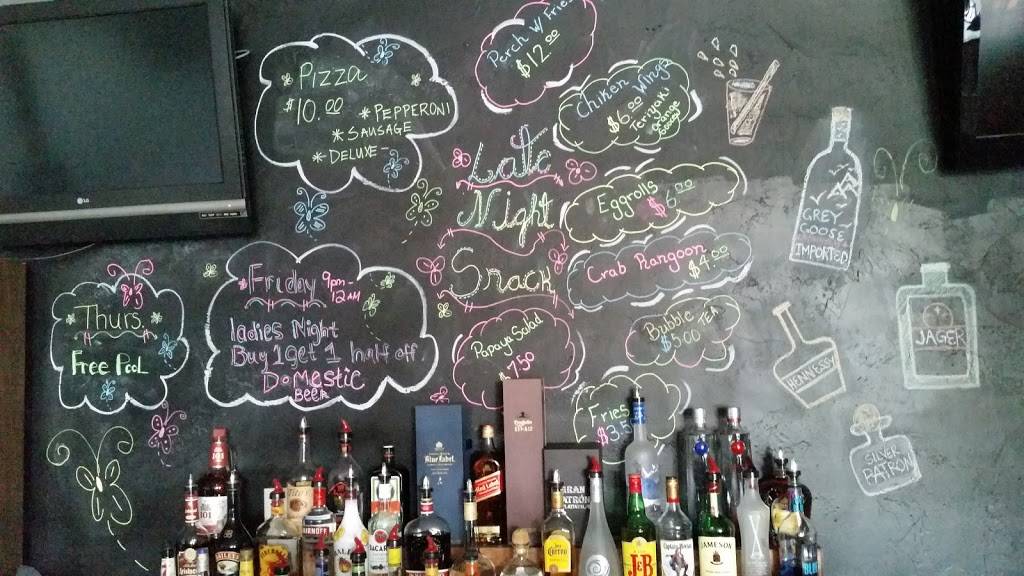 LG
* PIZZA *
$10.00
* PEPPERONI
* SAUSAGE
* DELUXE -
Perch w/ Fries
$12.00
Chiken Wings
$6.00
Teriyaki
Late
Night
Snack
Eggrolls
$6.00
Crab Rangoon
$4.00
Bubble TEA
$5.00
Papaya Salad
7.50
Fries
$3.5
* Thurs. *
Free Pool
Friday 9pm-
12AM
ladies Night
Buy 1 get 1 half off
DOMESTIC
BEER
GREY
GOOSE
IMPORTED
JAGER
HENNESSY
SILVER
PATRON
Blue Label
Red Label
GRAN
PATRÓN
SMIRNOFF
BACARDI
Jose Cuervo
J&B
Captain Morgan
JAMESON